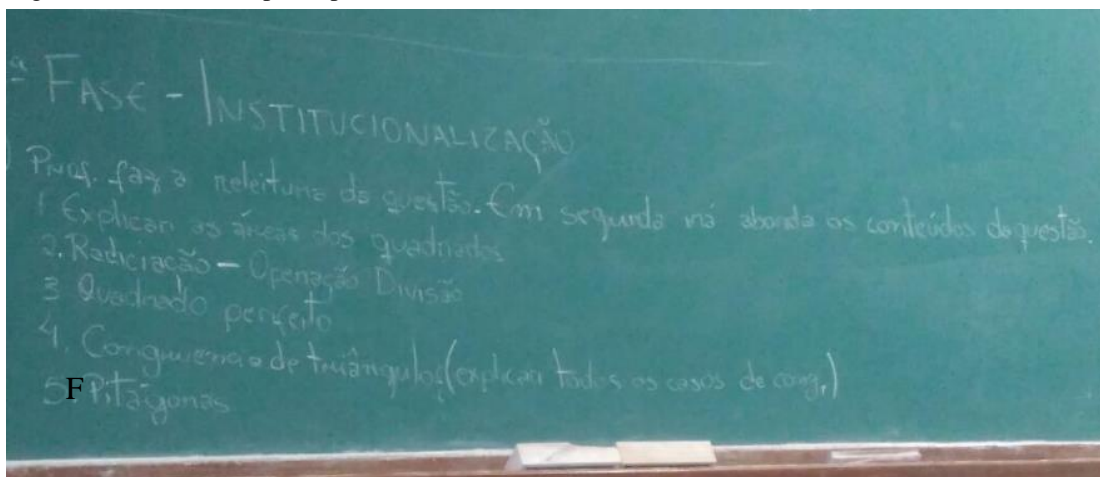 ª FASE - INSTITUCIONALIZAÇÃO
) Prof. faz a releitura da questão. Em segunda irá abordar os conteúdos da questão.
1 Explicar as áreas dos quadrados
2. Radiciação - Operação Divisão
3 Quadrado perfeito
4. Congruencia de triângulos (explicar todos os casos de cong.)
5. F Pitágoras